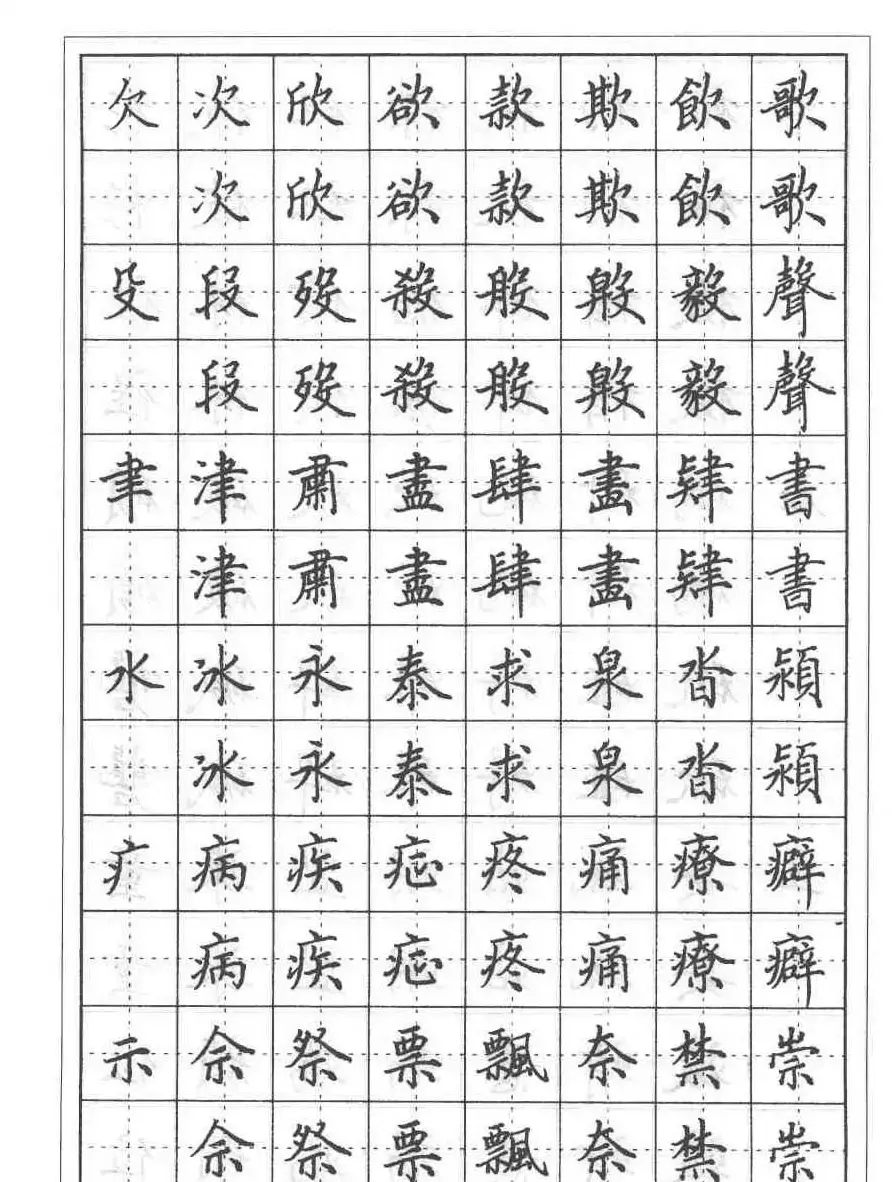 欠 次 欣 欲 款 欺 飲 歌
次 欣 欲 款 欺 飲 歌
殳 段 殁 殺 般 毅 聲
段 殁 殺 般 毅 聲
聿 津 肅 盡 肆 畫 肄 書
津 肅 盡 肆 畫 肄 書
水 冰 永 泰 求 泉 沓 潁
冰 永 泰 求 泉 沓 潁
疒 病 疾 疼 痛 療 癖
病 疾 疼 痛 療 癖
示 佘 祭 票 飄 奈 禁 崇
佘 祭 票 飄 奈 禁 崇